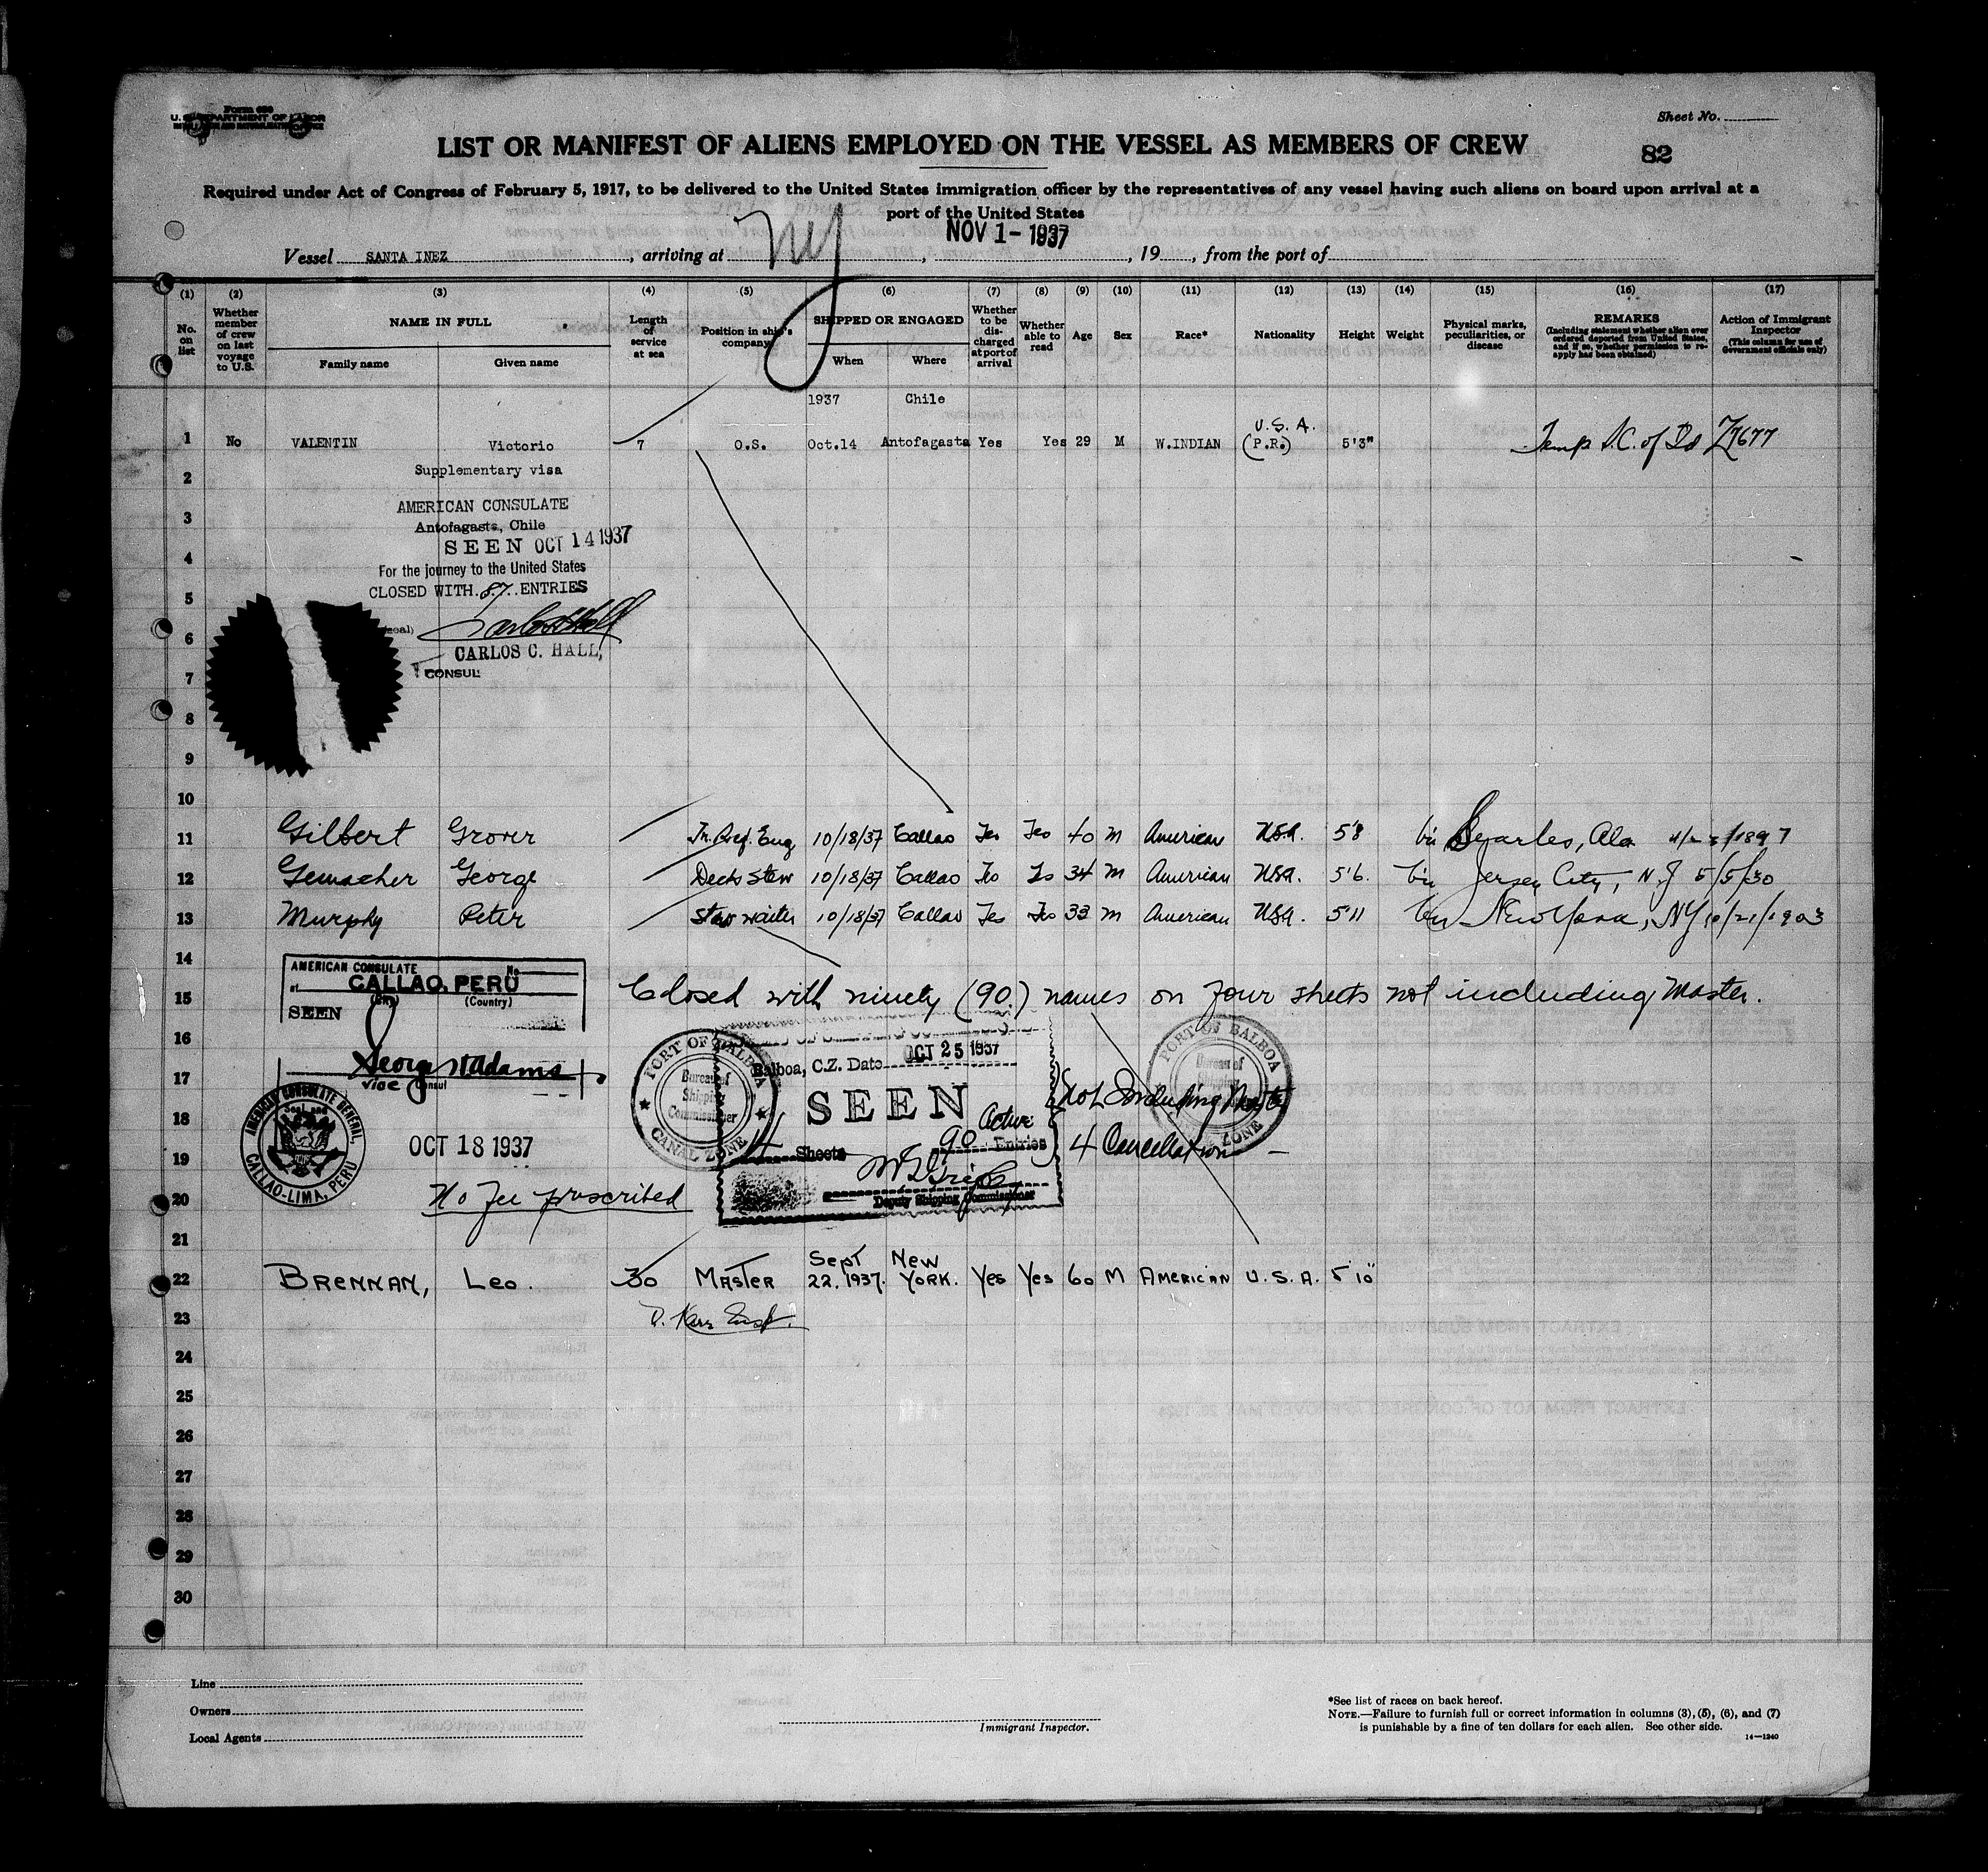 Form 680
U. S. DEPARTMENT OF LABOR
Sheet No.
LIST OR MANIFEST OF ALIENS EMPLOYED ON THE VESSEL AS MEMBERS OF CREW
82
Required under Act of Congress of February 5, 1917, to be delivered to the United States immigration officer by the representatives of any vessel having such aliens on board upon arrival at a
port of the United States
NOV 1 - 1937
Vessel SANTA INEZ, arriving at NY, 19, from the port of
(1) (2) (3) (4) (5) (6) (7) (8) (9) (10) (11) (12) (13) (14) (15) (16) (17)
No. on list
Whether member of crew on last voyage to U.S.
NAME IN FULL
Family name
Given name
Length of service at sea
Position in ship's company
SHIPPED OR ENGAGED
When
Where
Whether to be discharged at port of arrival
Whether able to read
Age
Sex
Race*
Nationality
Height
Weight
Physical marks, peculiarities, or disease
REMARKS
(Including statement whether alien ever ordered deported from United States, and if so, whether permission to reapply has been obtained)
Action of Immigrant Inspector
(This column for use of Government officials only)
1937 Chile
U.S.A.
1 No VALENTIN Victorio 7 O.S. Oct.14 Antofagasta Yes Yes 29 M W.INDIAN (P.R.) 5'3" Temp
2 Supplementary visa
AMERICAN CONSULATE
3 Antofagasta, Chile
SEEN OCT 14 1937
4 For the journey to the United States
CLOSED WITH 87 ENTRIES
5
6 (seal)
CARLOS C. HALL,
7 CONSUL
8
9
10
11 Gilbert Grover 10/18/37 Callao Yes Yes 40 M American USA. 5'8 Searles, Ala
12 Gemacher George Deck Stew 10/18/37 Callao Yes Yes 34 M American USA. 5'6. Jersey City, N.J 5/5/30
13 Murphy Peter waiter 10/18/37 Callao Yes Yes 33 M American USA. 5'11 New York, NY 10/21/1903
14
AMERICAN CONSULATE No.
at CALLAO, PERU
(City) (Country)
SEEN
15 Closed with ninety (90.) names on four sheets not including Master.
16
George W Adams
17 Vice Consul
AMERICAN CONSULATE GENERAL, CALLAO-LIMA, PERU
OCT 18 1937
No Fee prescribed
PORT OF BALBOA
Bureau of Shipping Commissioner
CANAL ZONE
Balboa, C.Z. Date OCT 25 1937
SEEN
4 Sheets 90 Active Entries
Deputy Shipping Commissioner
Not Including Master
4 Cancellation
PORT OF BALBOA
Bureau of Shipping
ZONE
18
19
20
21
22 BRENNAN, Leo. 30 MASTER Sept 22, 1937. New York. Yes Yes 60 M AMERICAN U.S.A. 5'10"
23
24
25
26
27
28
29
30
Line
Owners
Local Agents
Immigrant Inspector.
*See list of races on back hereof.
NOTE.—Failure to furnish full or correct information in columns (3), (5), (6), and (7)
is punishable by a fine of ten dollars for each alien. See other side.
14—1240